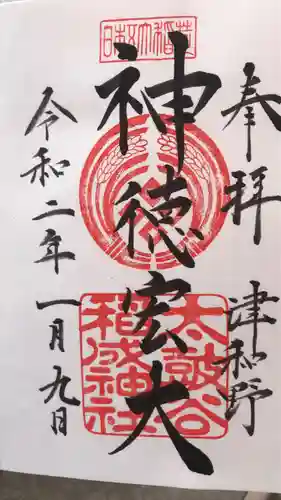 奉拝
津和野
神徳宏大
太皷谷
稲成神社
令和二年一月九日